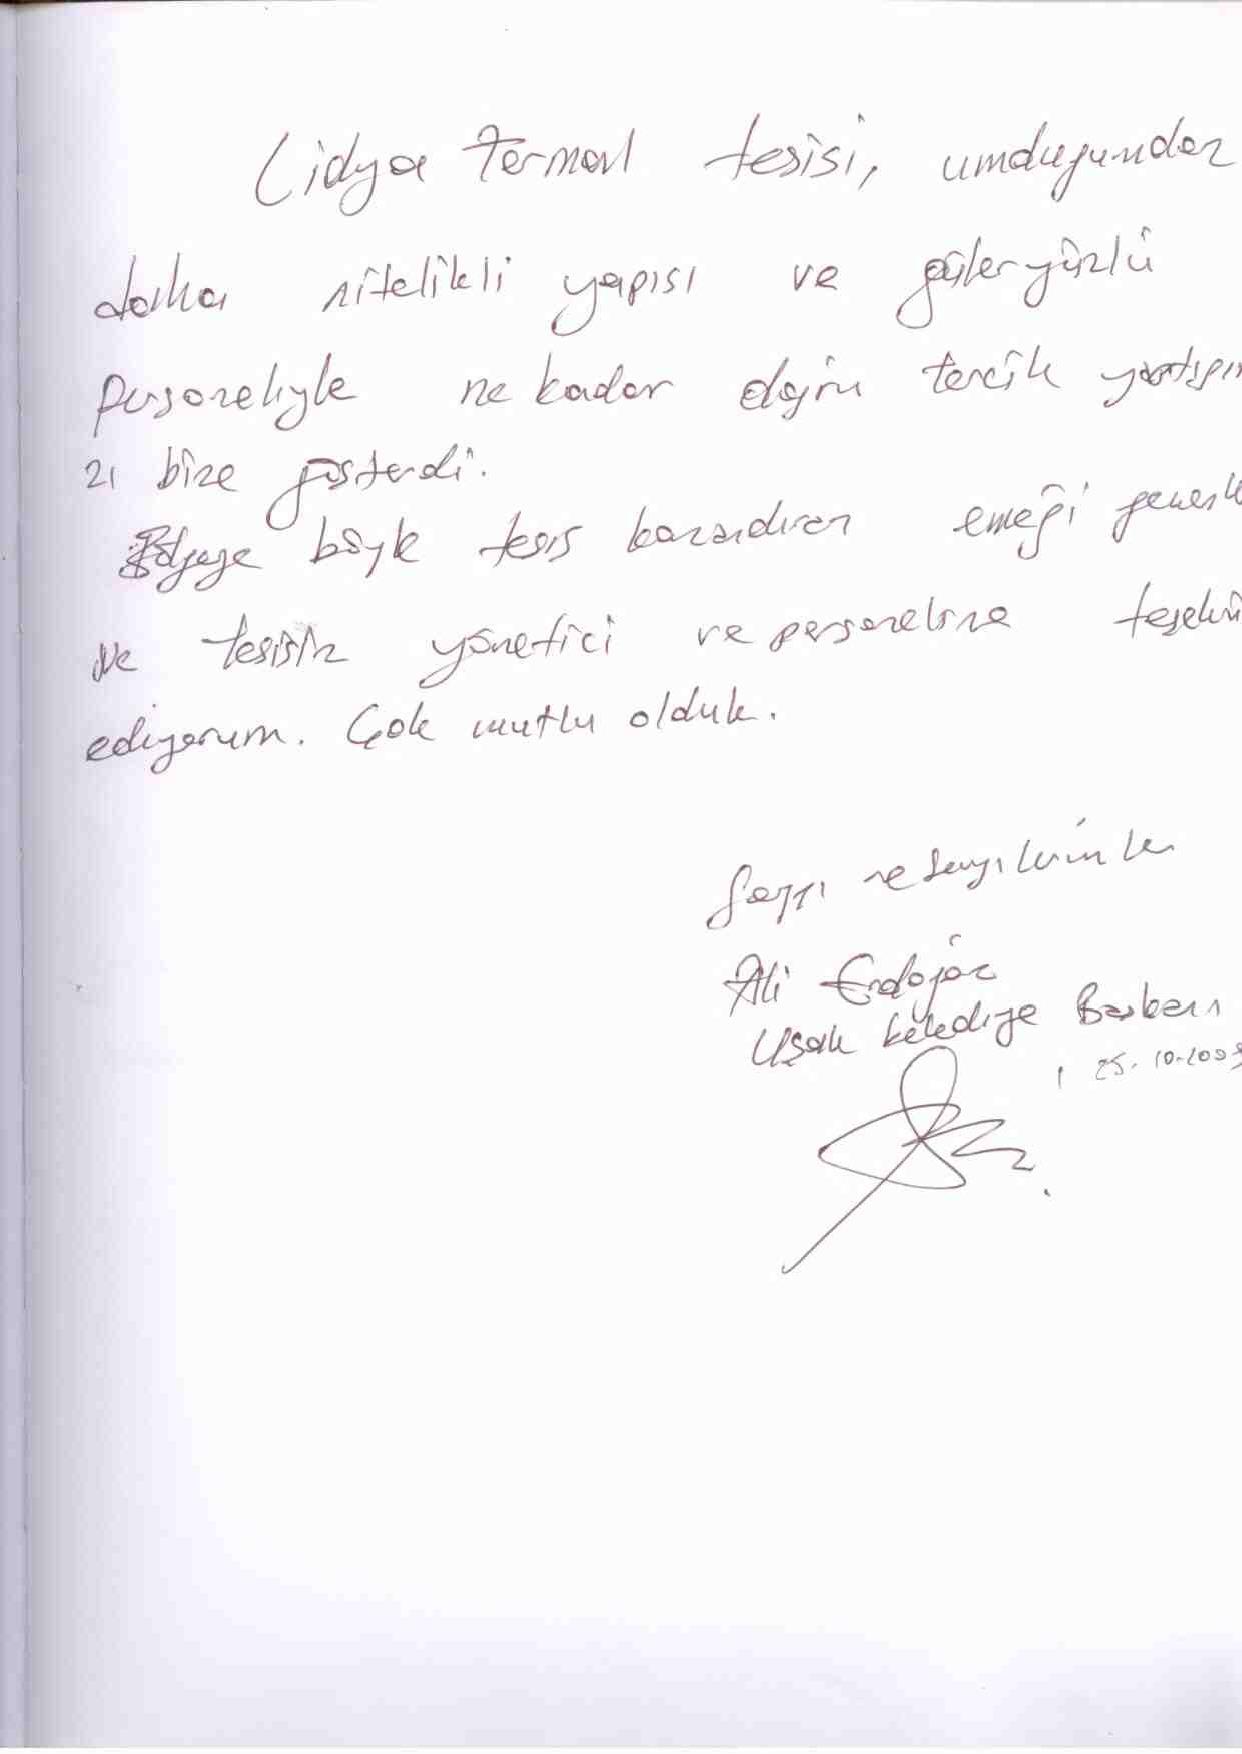 Lidya Termal tesisi, umduğundan
daha nitelikli yapısı ve güleryüzlü
personeliyle ne kadar doğru tercih yaptığın
zı bize gösterdi.
Bölgeye böyle tesis kazandıran emeği
ve tesisin yönetici ve personeline
ediyorum. Çok mutlu olduk.
Saygı ve sevgilerimle
Ali Erdoğan
Uşak Belediye Başkanı
25.10.2009